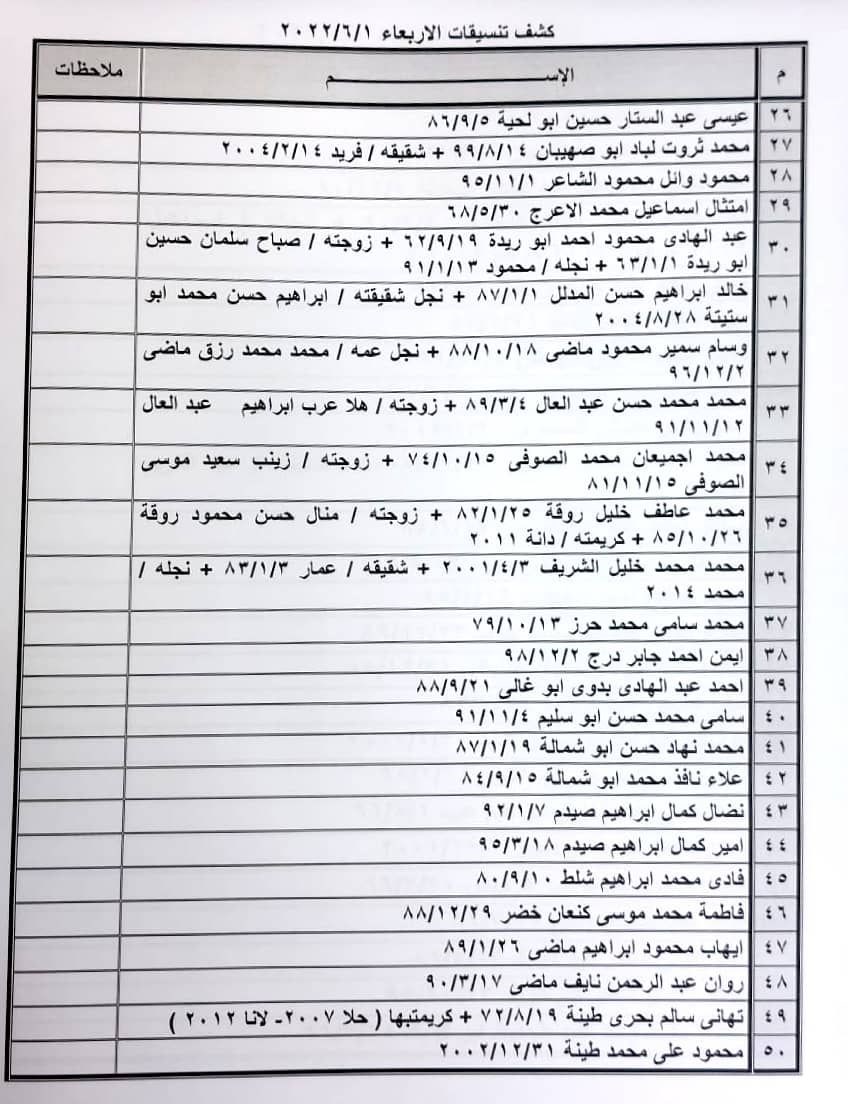 كشف تنسيقات الاربعاء ٢٠٢٢/٦/١
م الإســـــــــم ملاحظات
٢٦ عيسى عبد الستار حسين ابو لحية ٨٦/٩/٥
٢٧ محمد ثروت لباد ابو صهيبان ٩٩/٨/١٤ + شقيقه / فريد ٢٠٠٤/٢/١٤
٢٨ محمود وائل محمود الشاعر ٩٥/١١/١
٢٩ امتثال اسماعيل محمد الاعرج ٦٨/٥/٣٠
٣٠ عبد الهادى محمود احمد ابو ريدة ٦٢/٩/١٩ + زوجته / صباح سلمان حسين
ابو ريدة ٦٣/١/١ + نجله / محمود ٩١/١/١٣
٣١ خالد ابراهيم حسن المدلل ٨٧/١/١ + نجل شقيقته / ابراهيم حسن محمد ابو
ستيتة ٢٠٠٤/٨/٢٨
٣٢ وسام سمير محمود ماضى ٨٨/١٠/١٨ + نجل عمه / محمد محمد رزق ماضى
٩٦/١٢/٢
٣٣ محمد محمد حسن عبد العال ٨٩/٣/٤ + زوجته / هلا عرب ابراهيم عبد العال
٩١/١١/١٢
٣٤ محمد اجميعان محمد الصوفى ٧٤/١٠/١٥ + زوجته / زينب سعيد موسى
الصوفى ٨١/١١/١٥
٣٥ محمد عاطف خليل روقة ٨٢/١/٢٥ + زوجته / منال حسن محمود روقة
٨٥/١٠/٢٦ + كريمته / دانة ٢٠١١
٣٦ محمد محمد خليل الشريف ٢٠٠١/٤/٣ + شقيقه / عمار ٨٣/١/٣ + نجله /
محمد ٢٠١٤
٣٧ محمد سامى محمد حرز ٧٩/١٠/١٣
٣٨ ايمن احمد جابر درج ٩٨/١٢/٢
٣٩ احمد عبد الهادى بدوى ابو غالى ٨٨/٩/٢١
٤٠ سامى محمد حسن ابو سليم ٩١/١١/٤
٤١ محمد نهاد حسن ابو شمالة ٨٧/١/١٩
٤٢ علاء نافذ محمد ابو شمالة ٨٤/٩/١٥
٤٣ نضال كمال ابراهيم صيدم ٩٢/١/٧
٤٤ امير كمال ابراهيم صيدم ٩٥/٣/١٨
٤٥ فادى محمد ابراهيم شلط ٨٠/٩/١٠
٤٦ فاطمة محمد موسى كنعان خضر ٨٨/١٢/٢٩
٤٧ ايهاب محمود ابراهيم ماضى ٨٩/١/٢٦
٤٨ روان عبد الرحمن نايف ماضى ٩٠/٣/١٧
٤٩ تهانى سالم بحرى طينة ٧٢/٨/١٩ + كريمتيها ( حلا ٢٠٠٧- لانا ٢٠١٢ )
٥٠ محمود على محمد طينة ٢٠٠٢/١٢/٣١